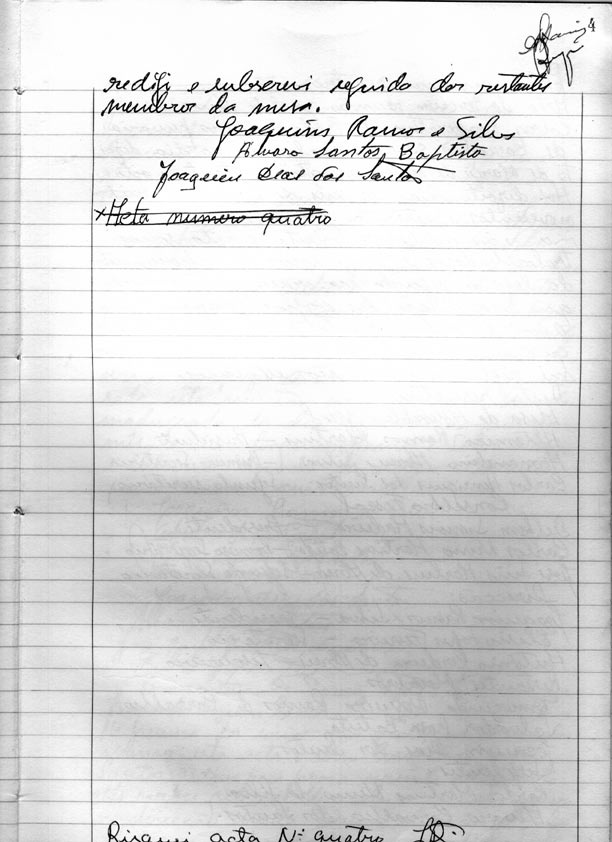 4
redigi e subscrevi seguido dos restantes
membros da mesa.
Joaquim Ramos e Silva
Alvaro Santos Baptista
Joaquim Dias dos Santos
Acta numero quatro
Risquei acta Nº quatro